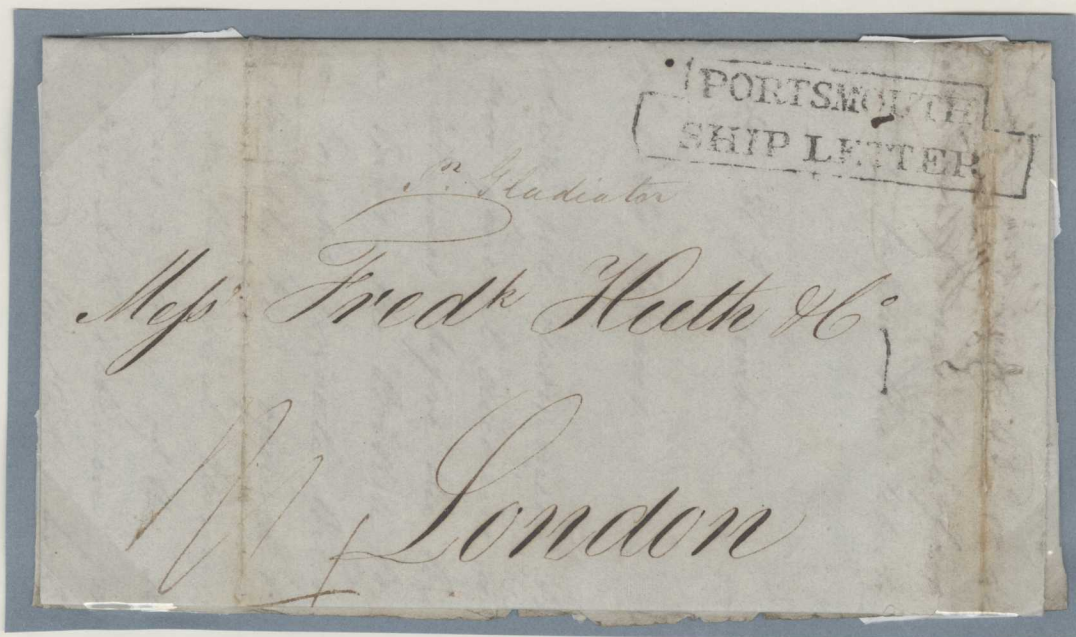 PORTSMOUTH
SHIP LETTER
pr Gladiator
Messrs Fredk Huth & Co
London